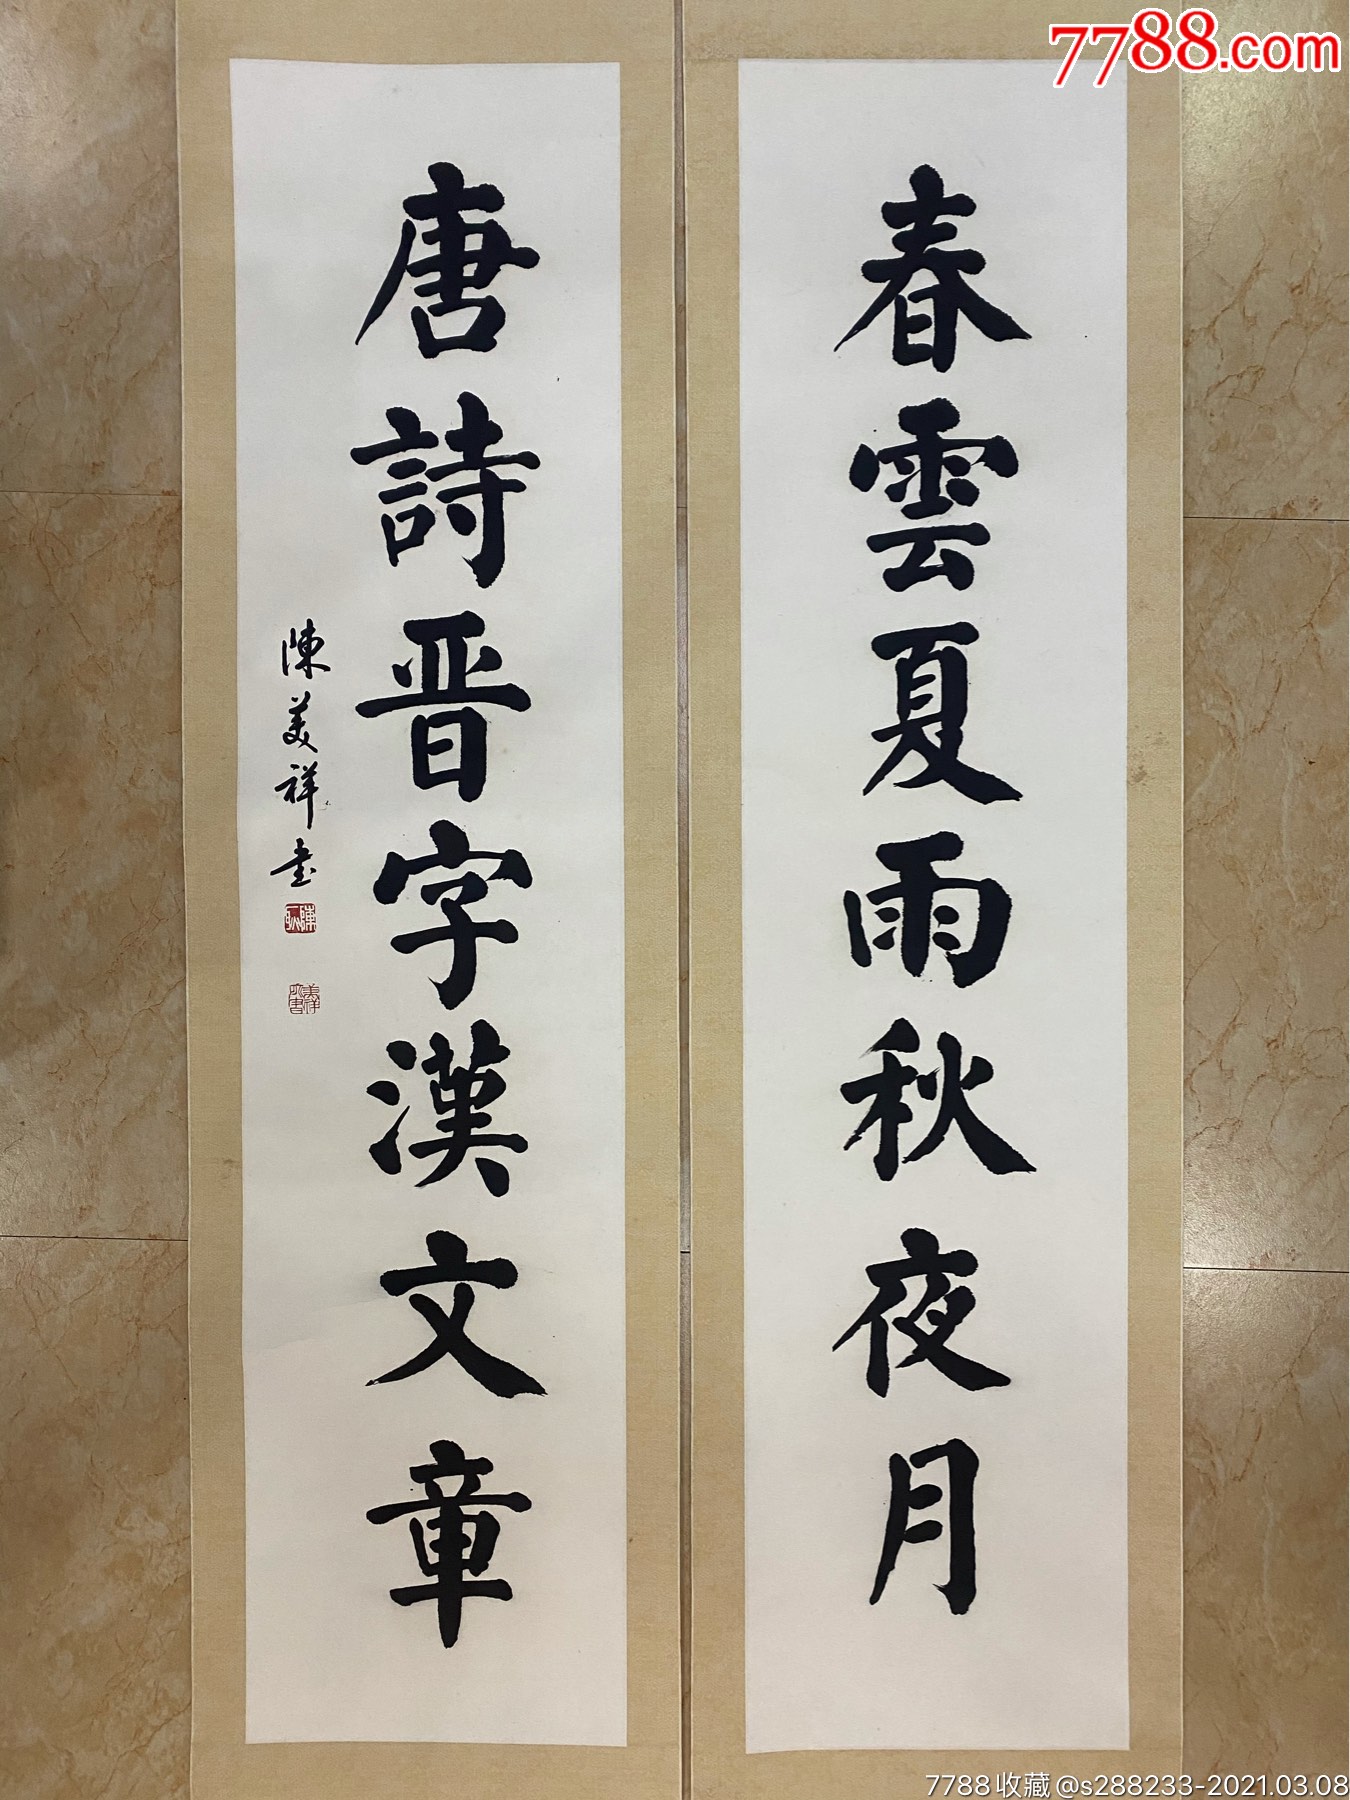 7788.com
春雲夏雨秋夜月
唐詩晋字漢文章
陳美祥書
7788收藏@s288233-2021.03.08